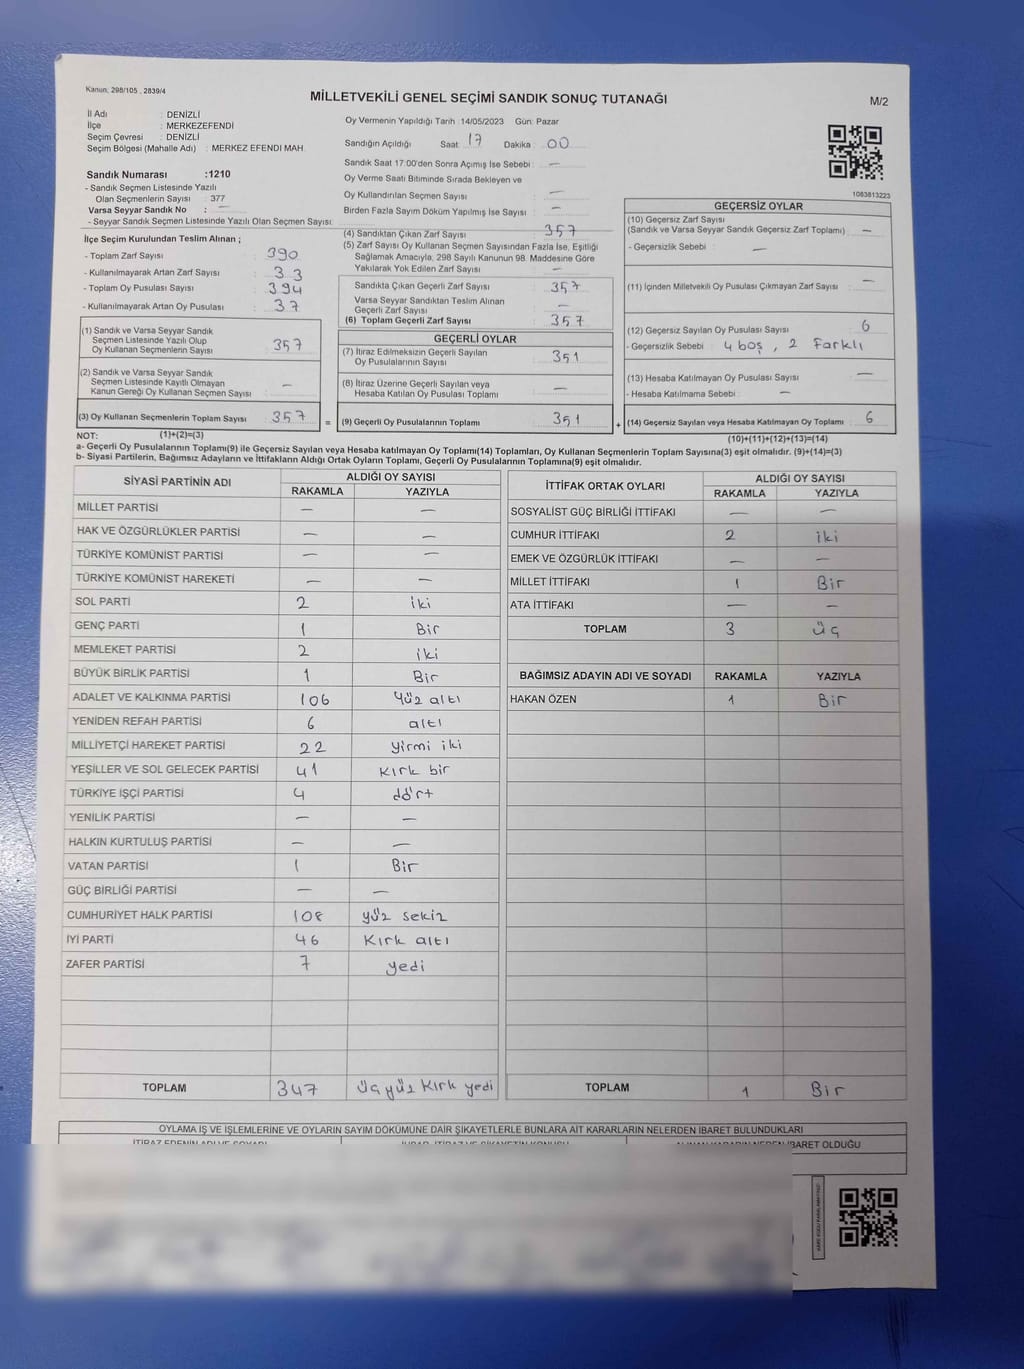 Kanun, 298/105 , 2839/4
MİLLETVEKİLİ GENEL SEÇİMİ SANDIK SONUÇ TUTANAĞI
M/2
İl Adı : DENİZLİ
İlçe : MERKEZEFENDİ
Seçim Çevresi : DENİZLİ
Seçim Bölgesi (Mahalle Adı) : MERKEZ EFENDİ MAH.
Sandık Numarası :1210
- Sandık Seçmen Listesinde Yazılı
Olan Seçmenlerin Sayısı : 377
Varsa Seyyar Sandık No : —
- Seyyar Sandık Seçmen Listesinde Yazılı Olan Seçmen Sayısı:
İlçe Seçim Kurulundan Teslim Alınan ;
- Toplam Zarf Sayısı : 390
- Kullanılmayarak Artan Zarf Sayısı : 33
- Toplam Oy Pusulası Sayısı : 394
- Kullanılmayarak Artan Oy Pusulası : 37
(1) Sandık ve Varsa Seyyar Sandık
Seçmen Listesinde Yazılı Olup
Oy Kullanan Seçmenlerin Sayısı : 357
(2) Sandık ve Varsa Seyyar Sandık
Seçmen Listesinde Kayıtlı Olmayan
Kanun Gereği Oy Kullanan Seçmen Sayısı : —
(3) Oy Kullanan Seçmenlerin Toplam Sayısı : 357 =
Oy Vermenin Yapıldığı Tarih : 14/05/2023 Gün: Pazar
Sandığın Açıldığı Saat: 17 Dakika : 00
Sandık Saat 17:00'den Sonra Açımış İse Sebebi : —
Oy Verme Saati Bitiminde Sırada Bekleyen ve
Oy Kullandırılan Seçmen Sayısı : —
Birden Fazla Sayım Döküm Yapılmış İse Sayısı : —
(4) Sandıktan Çıkan Zarf Sayısı : 357
(5) Zarf Sayısı Oy Kullanan Seçmen Sayısından Fazla İse, Eşitliği
Sağlamak Amacıyla, 298 Sayılı Kanunun 98. Maddesine Göre
Yakılarak Yok Edilen Zarf Sayısı : —
Sandıkta Çıkan Geçerli Zarf Sayısı : 357
Varsa Seyyar Sandıktan Teslim Alınan
Geçerli Zarf Sayısı : —
(6) Toplam Geçerli Zarf Sayısı : 357
GEÇERLİ OYLAR
(7) İtiraz Edilmeksizin Geçerli Sayılan
Oy Pusulalarının Sayısı : 351
(8) İtiraz Üzerine Geçerli Sayılan veya
Hesaba Katılan Oy Pusulası Toplamı : —
(9) Geçerli Oy Pusulalarının Toplamı : 351 +
1083813223
GEÇERSİZ OYLAR
(10) Geçersiz Zarf Sayısı
(Sandık ve Varsa Seyyar Sandık Geçersiz Zarf Toplamı) : —
- Geçersizlik Sebebi : —
(11) İçinden Milletvekili Oy Pusulası Çıkmayan Zarf Sayısı : —
(12) Geçersiz Sayılan Oy Pusulası Sayısı : 6
- Geçersizlik Sebebi : 4 boş, 2 Farklı
(13) Hesaba Katılmayan Oy Pusulası Sayısı : —
- Hesaba Katılmama Sebebi : —
(14) Geçersiz Sayılan veya Hesaba Katılmayan Oy Toplamı : 6
NOT: (1)+(2)=(3)
(10)+(11)+(12)+(13)=(14)
a- Geçerli Oy Pusulalarının Toplamı(9) ile Geçersiz Sayılan veya Hesaba katılmayan Oy Toplamı(14) Toplamları, Oy Kullanan Seçmenlerin Toplam Sayısına(3) eşit olmalıdır. (9)+(14)=(3)
b- Siyasi Partilerin, Bağımsız Adayların ve İttifakların Aldığı Oyların Toplamı, Geçerli Oy Pusulalarının Toplamına(9) eşit olmalıdır.
SİYASİ PARTİNİN ADI ALDIĞI OY SAYISI
RAKAMLA YAZIYLA
MİLLET PARTİSİ — —
HAK VE ÖZGÜRLÜKLER PARTİSİ — —
TÜRKİYE KOMÜNİST PARTİSİ — —
TÜRKİYE KOMÜNİST HAREKETİ — —
SOL PARTİ 2 iki
GENÇ PARTİ 1 Bir
MEMLEKET PARTİSİ 2 iki
BÜYÜK BİRLİK PARTİSİ 1 Bir
ADALET VE KALKINMA PARTİSİ 106 Yüz altı
YENİDEN REFAH PARTİSİ 6 altı
MİLLİYETÇİ HAREKET PARTİSİ 22 yirmi iki
YEŞİLLER VE SOL GELECEK PARTİSİ 41 Kırk bir
TÜRKİYE İŞÇİ PARTİSİ 4 dört
YENİLİK PARTİSİ — —
HALKIN KURTULUŞ PARTİSİ — —
VATAN PARTİSİ 1 Bir
GÜÇ BİRLİĞİ PARTİSİ — —
CUMHURİYET HALK PARTİSİ 108 yüz sekiz
İYİ PARTİ 46 Kırk altı
ZAFER PARTİSİ 7 yedi
TOPLAM 347 üçyüz Kırk yedi
İTTİFAK ORTAK OYLARI ALDIĞI OY SAYISI
RAKAMLA YAZIYLA
SOSYALİST GÜÇ BİRLİĞİ İTTİFAKI — —
CUMHUR İTTİFAKI 2 iki
EMEK VE ÖZGÜRLÜK İTTİFAKI — —
MİLLET İTTİFAKI 1 Bir
ATA İTTİFAKI — —
TOPLAM 3 üç
BAĞIMSIZ ADAYIN ADI VE SOYADI RAKAMLA YAZIYLA
HAKAN ÖZEN 1 Bir
TOPLAM 1 Bir
OYLAMA İŞ VE İŞLEMLERİNE VE OYLARIN SAYIM DÖKÜMÜNE DAİR ŞİKAYETLERLE BUNLARA AİT KARARLARIN NELERDEN İBARET BULUNDUKLARI
İBARET OLDUĞU